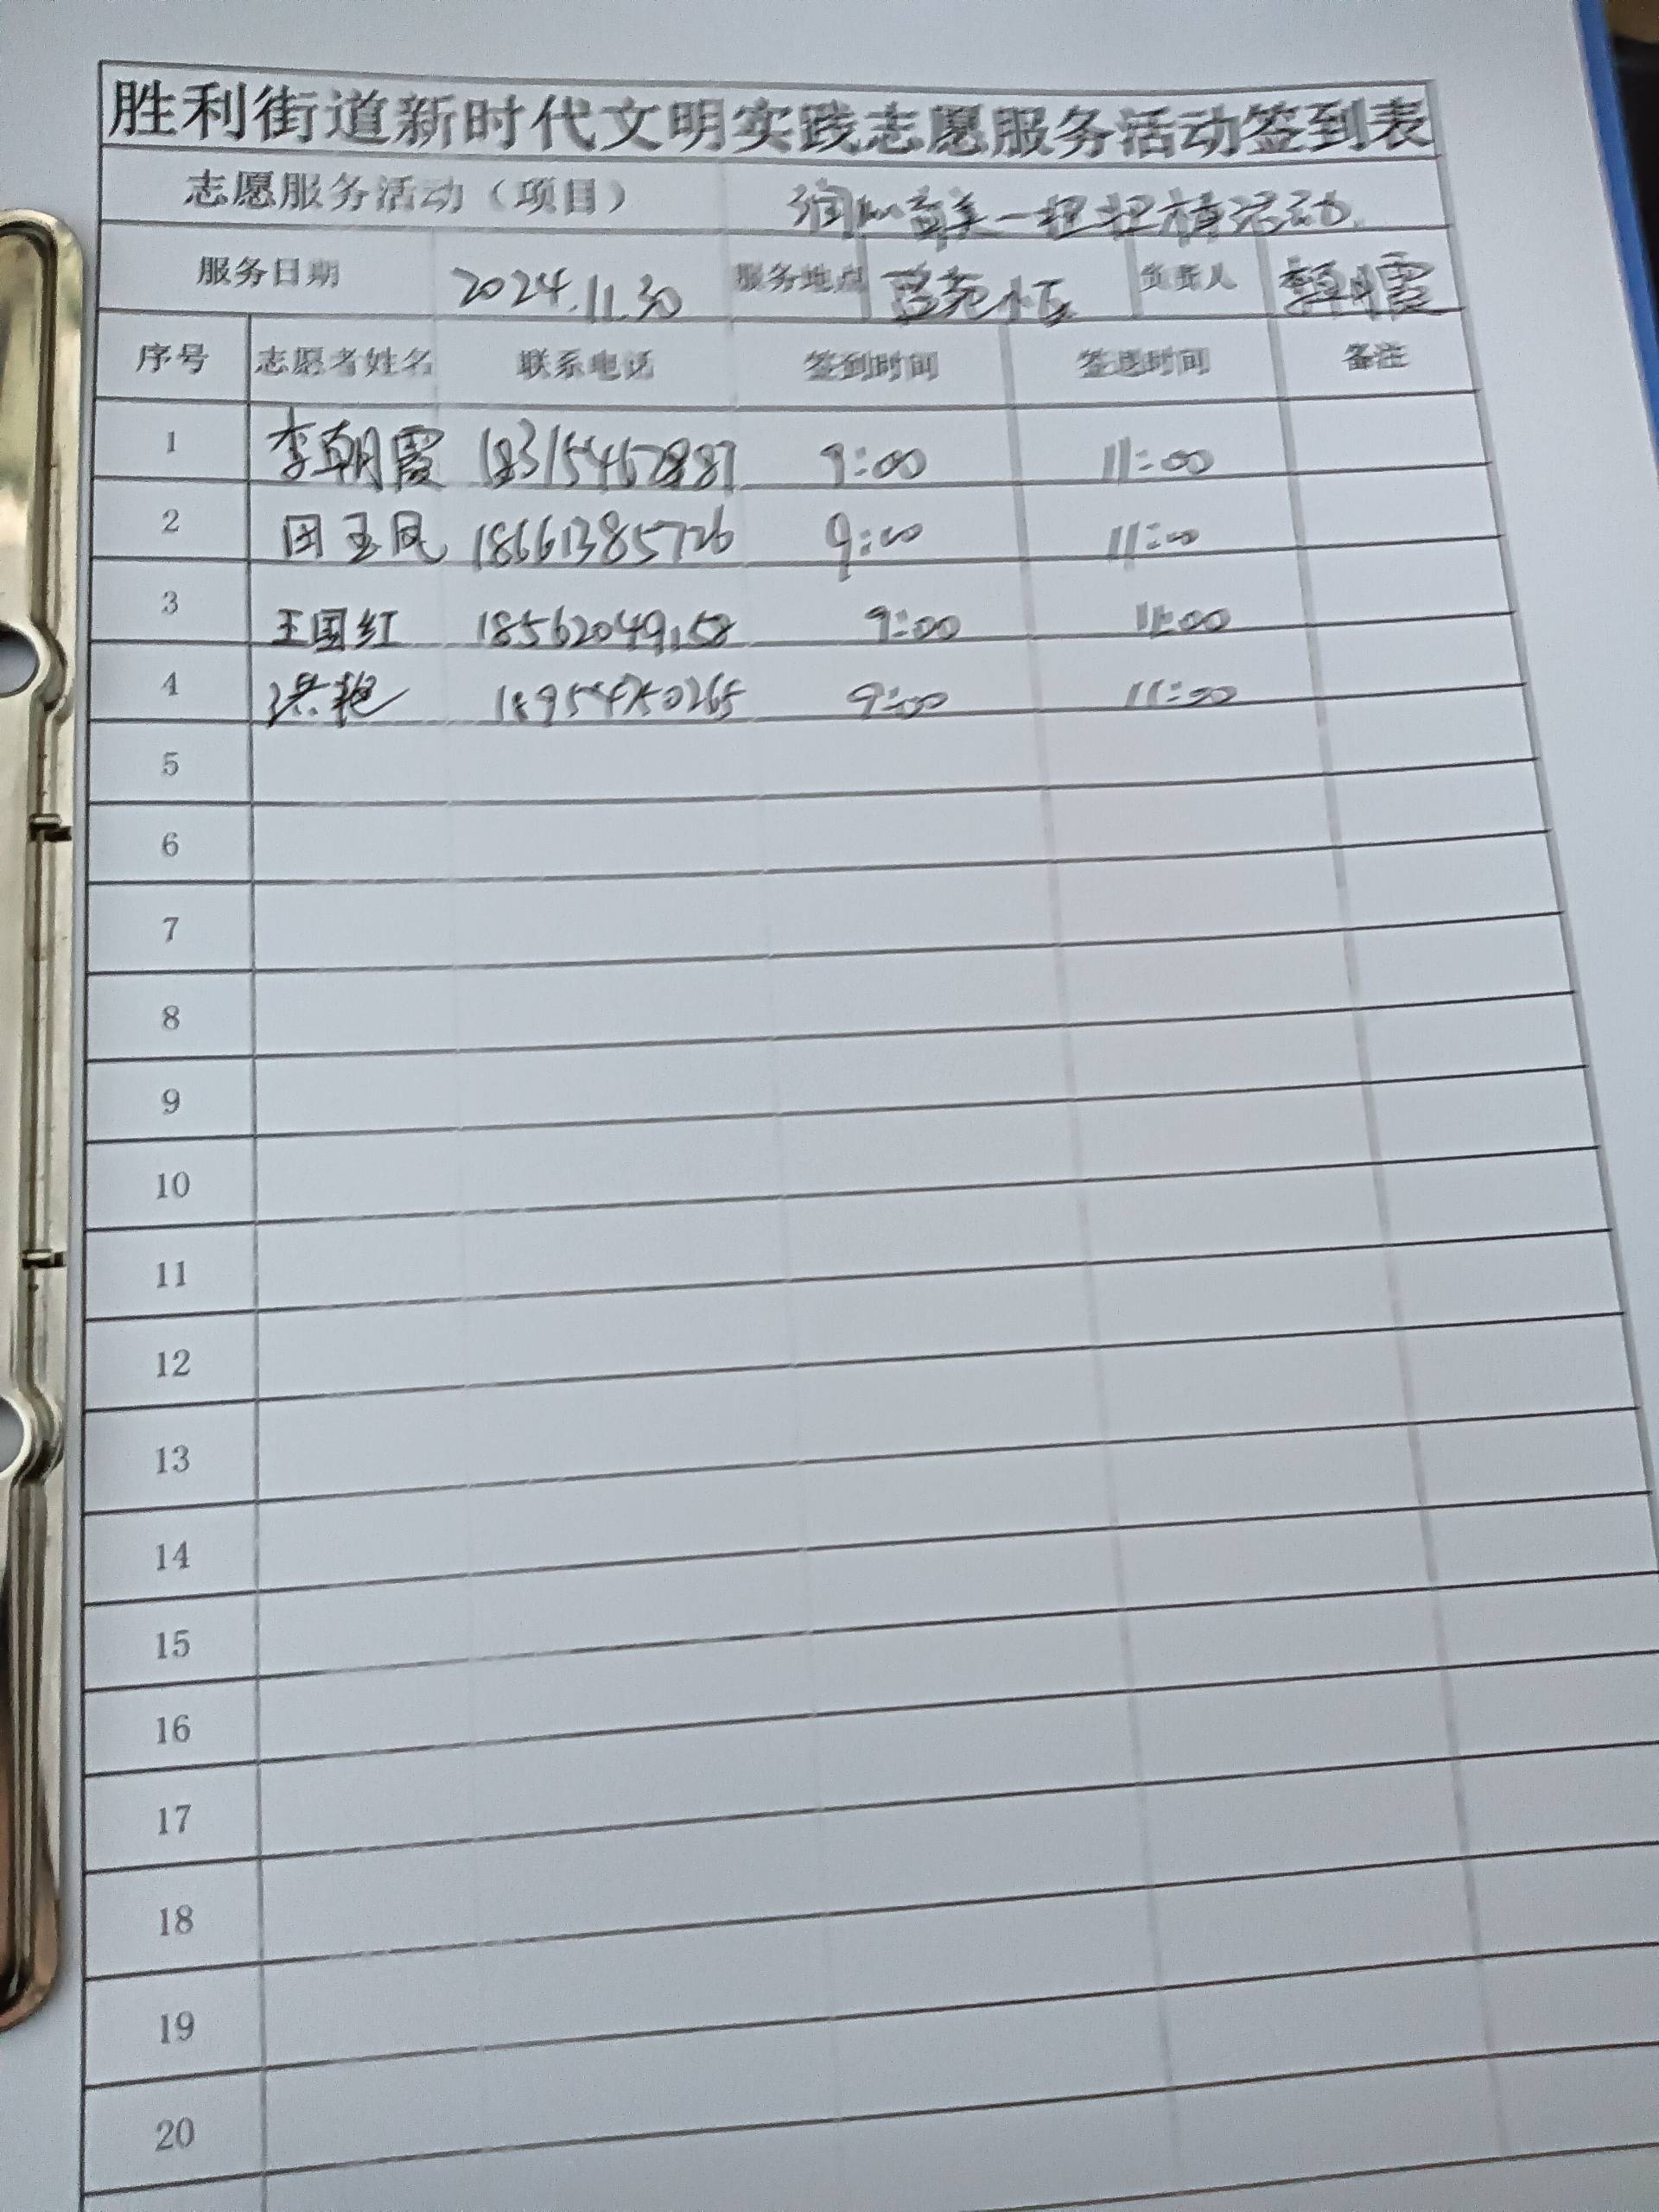 胜利街道新时代文明实践志愿服务活动签到表
志愿服务活动（项目） 润心育美一扭扭棒活动
服务日期 2024.11.30 服务地点 负责人 李朝霞
序号 志愿者姓名 联系电话 签到时间 签退时间 备注
1 李朝霞 18315467887 9:00 11:00
2 田玉凤 18661385726 9:00 11:00
3 王国红 18562049158 9:00 11:00
4 洪艳 9:00 11:00
5
6
7
8
9
10
11
12
13
14
15
16
17
18
19
20